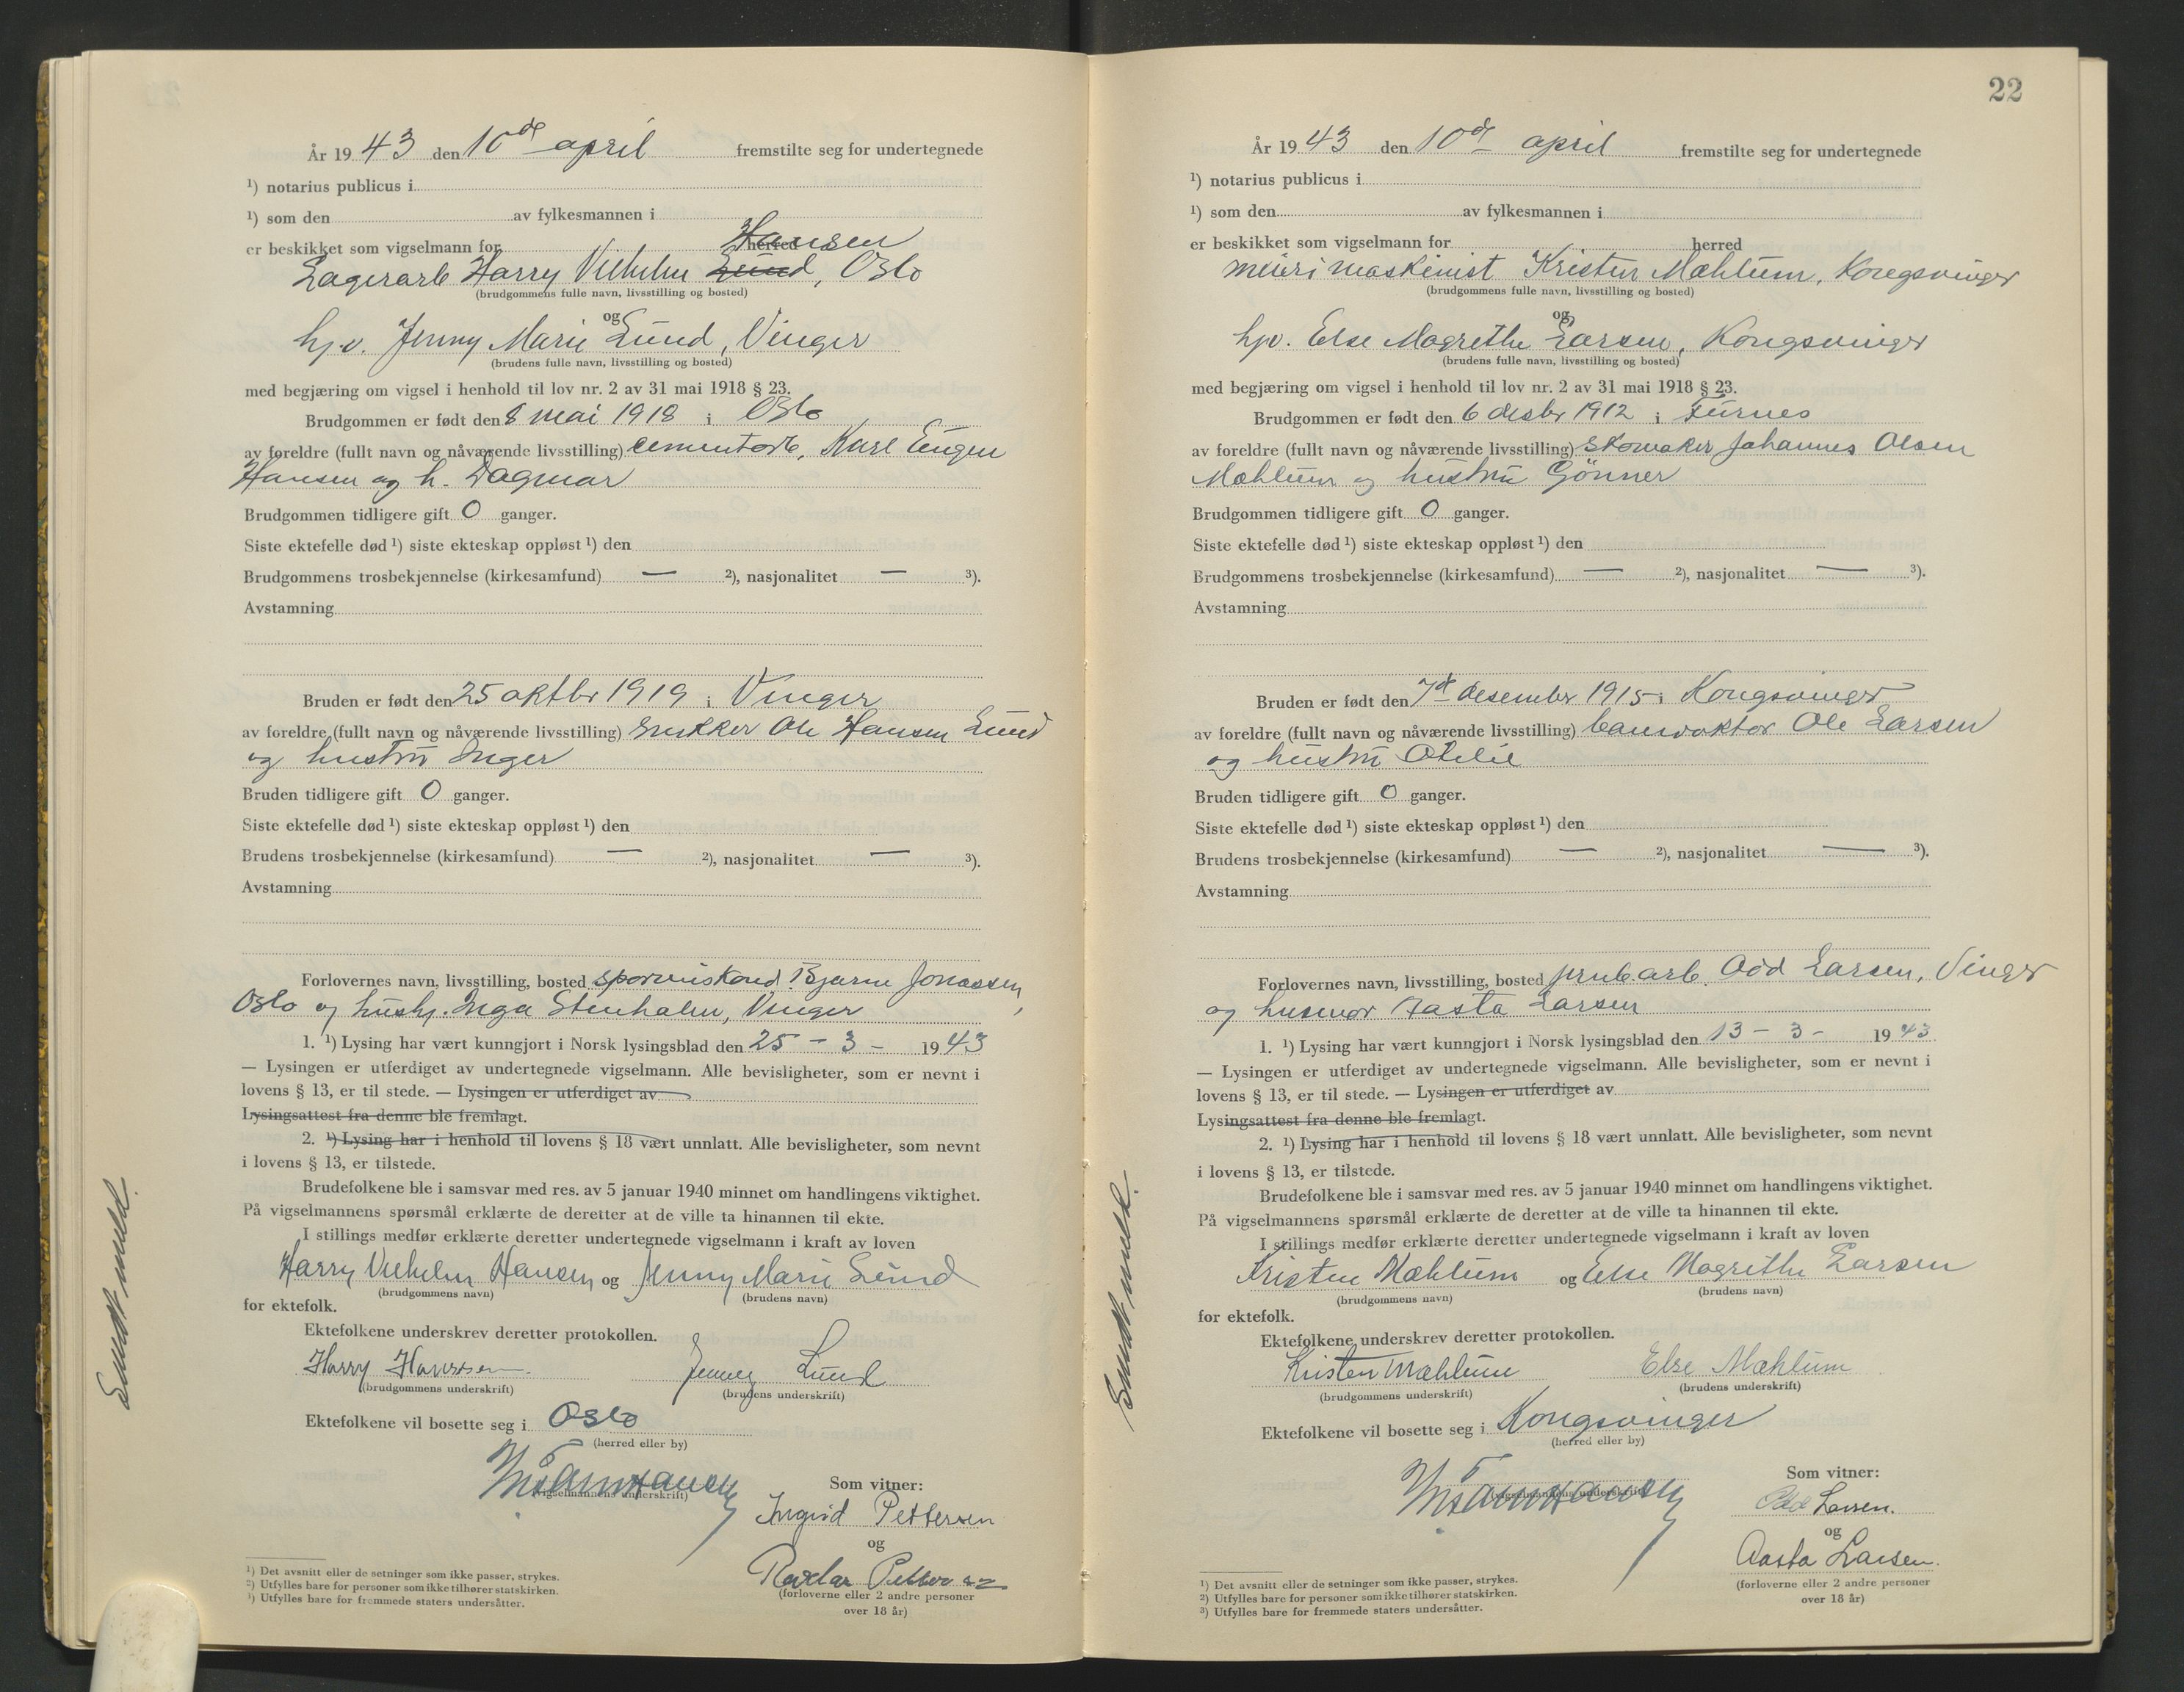 År 1943 den 10de april fremstilte seg for undertegnede
¹) notarius publicus i
¹) som den av fylkesmannen i
er beskikket som vigselmann for herred
Hansen
Lagerarb Harry Vilhelm Lund, Oslo
(brudgommens fulle navn, livsstilling og bosted)
og
hjv. Jenny Marie Lund, Vinger
(brudens fulle navn, livsstilling og bosted)
med begjæring om vigsel i henhold til lov nr. 2 av 31 mai 1918 § 23.
Brudgommen er født den 8 mai 1918 i Oslo
av foreldre (fullt navn og nåværende livsstilling) cementarb. Karl Eugen
Hansen og h. Dagmar
Brudgommen tidligere gift 0 ganger.
Siste ektefelle død ¹) siste ekteskap oppløst ¹) den
Brudgommens trosbekjennelse (kirkesamfund) — ²), nasjonalitet — ³).
Avstamning
Bruden er født den 25 oktbr 1919 i Vinger
av foreldre (fullt navn og nåværende livsstilling) snekker Ole Hansen Lund
og hustru Inger
Bruden tidligere gift 0 ganger.
Siste ektefelle død ¹) siste ekteskap oppløst ¹) den
Brudens trosbekjennelse (kirkesamfund) — ²), nasjonalitet — ³).
Avstamning
Forlovernes navn, livsstilling, bosted Bjarne Jonassen,
Oslo og Inga Stenholm, Vinger
1. ¹) Lysing har vært kunngjort i Norsk lysingsblad den 25 – 3 – 1943
— Lysingen er utferdiget av undertegnede vigselmann. Alle bevisligheter, som er nevnt i
lovens § 13, er til stede. — Lysingen er utferdiget av
Lysingsattest fra denne ble fremlagt.
2. ¹) Lysing har i henhold til lovens § 18 vært unnlatt. Alle bevisligheter, som nevnt
i lovens § 13, er tilstede.
Brudefolkene ble i samsvar med res. av 5 januar 1940 minnet om handlingens viktighet.
På vigselmannens spørsmål erklærte de deretter at de ville ta hinannen til ekte.
I stillings medfør erklærte deretter undertegnede vigselmann i kraft av loven
Harry Vilhelm Hansen og Jenny Marie Lund
(brudgommens navn) (brudens navn)
for ektefolk.
Ektefolkene underskrev deretter protokollen.
Harry Hanssen Jenny Lund
(brudgommens underskrift) (brudens underskrift)
Ektefolkene vil bosette seg i Oslo
(herred eller by)
(vigselmannens underskrift)
Som vitner:
Ingrid Pettersen
og
Reidar Pettersen
(forloverne eller 2 andre personer
over 18 år)
¹) Det avsnitt eller de setninger som ikke passer, strykes.
²) Utfylles bare for personer som ikke tilhører statskirken.
³) Utfylles bare for fremmede staters undersåtter.
22
År 1943 den 10de april fremstilte seg for undertegnede
¹) notarius publicus i
¹) som den av fylkesmannen i
er beskikket som vigselmann for herred
maskinist Kristen Mæhlum, Kongsvinger
(brudgommens fulle navn, livsstilling og bosted)
og
hjv. Else Magrethe Larsen, Kongsvinger
(brudens fulle navn, livsstilling og bosted)
med begjæring om vigsel i henhold til lov nr. 2 av 31 mai 1918 § 23.
Brudgommen er født den 6 desbr 1912 i Furnes
av foreldre (fullt navn og nåværende livsstilling) skomaker Johannes Olsen
Mæhlum og hustru Gønner
Brudgommen tidligere gift 0 ganger.
Siste ektefelle død ¹) siste ekteskap oppløst ¹) den
Brudgommens trosbekjennelse (kirkesamfund) — ²), nasjonalitet — ³).
Avstamning
Bruden er født den 7de desember 1915 i Kongsvinger
av foreldre (fullt navn og nåværende livsstilling) banevokter Ole Larsen
og hustru Otilie
Bruden tidligere gift 0 ganger.
Siste ektefelle død ¹) siste ekteskap oppløst ¹) den
Brudens trosbekjennelse (kirkesamfund) — ²), nasjonalitet — ³).
Avstamning
Forlovernes navn, livsstilling, bosted jernb.arb. Odd Larsen, Vinger
og husmor Aasta Larsen
1. ¹) Lysing har vært kunngjort i Norsk lysingsblad den 13 – 3 – 1943
— Lysingen er utferdiget av undertegnede vigselmann. Alle bevisligheter, som er nevnt i
lovens § 13, er til stede. — Lysingen er utferdiget av
Lysingsattest fra denne ble fremlagt.
2. ¹) Lysing har i henhold til lovens § 18 vært unnlatt. Alle bevisligheter, som nevnt
i lovens § 13, er tilstede.
Brudefolkene ble i samsvar med res. av 5 januar 1940 minnet om handlingens viktighet.
På vigselmannens spørsmål erklærte de deretter at de ville ta hinannen til ekte.
I stillings medfør erklærte deretter undertegnede vigselmann i kraft av loven
Kristen Mæhlum og Else Magrethe Larsen
(brudgommens navn) (brudens navn)
for ektefolk.
Ektefolkene underskrev deretter protokollen.
Kristen Mæhlum Else Mæhlum
(brudgommens underskrift) (brudens underskrift)
Ektefolkene vil bosette seg i Kongsvinger
(herred eller by)
(vigselmannens underskrift)
Som vitner:
Odd Larsen.
og
Aasta Larsen.
(forloverne eller 2 andre personer
over 18 år)
¹) Det avsnitt eller de setninger som ikke passer, strykes.
²) Utfylles bare for personer som ikke tilhører statskirken.
³) Utfylles bare for fremmede staters undersåtter.